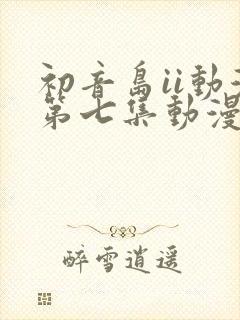 初音島ii動
第七集動漫
醉雪逍遥